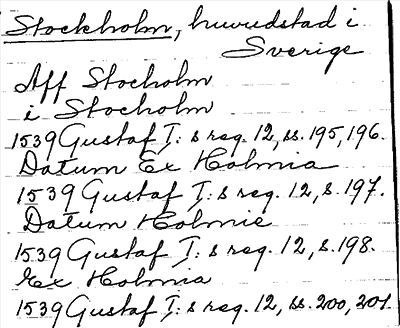 Stockholm, huvudstad i
Sverige
Aff Stocholm
i Stocholm
1539 Gustaf I:s reg. 12, ss. 195, 196.
Datum Ex Holmia
1539 Gustaf I:s reg. 12, s. 197.
Datum Holmie
1539 Gustaf I:s reg. 12, s. 198.
Ex Holmia
1539 Gustaf I:s reg. 12, ss. 200, 201